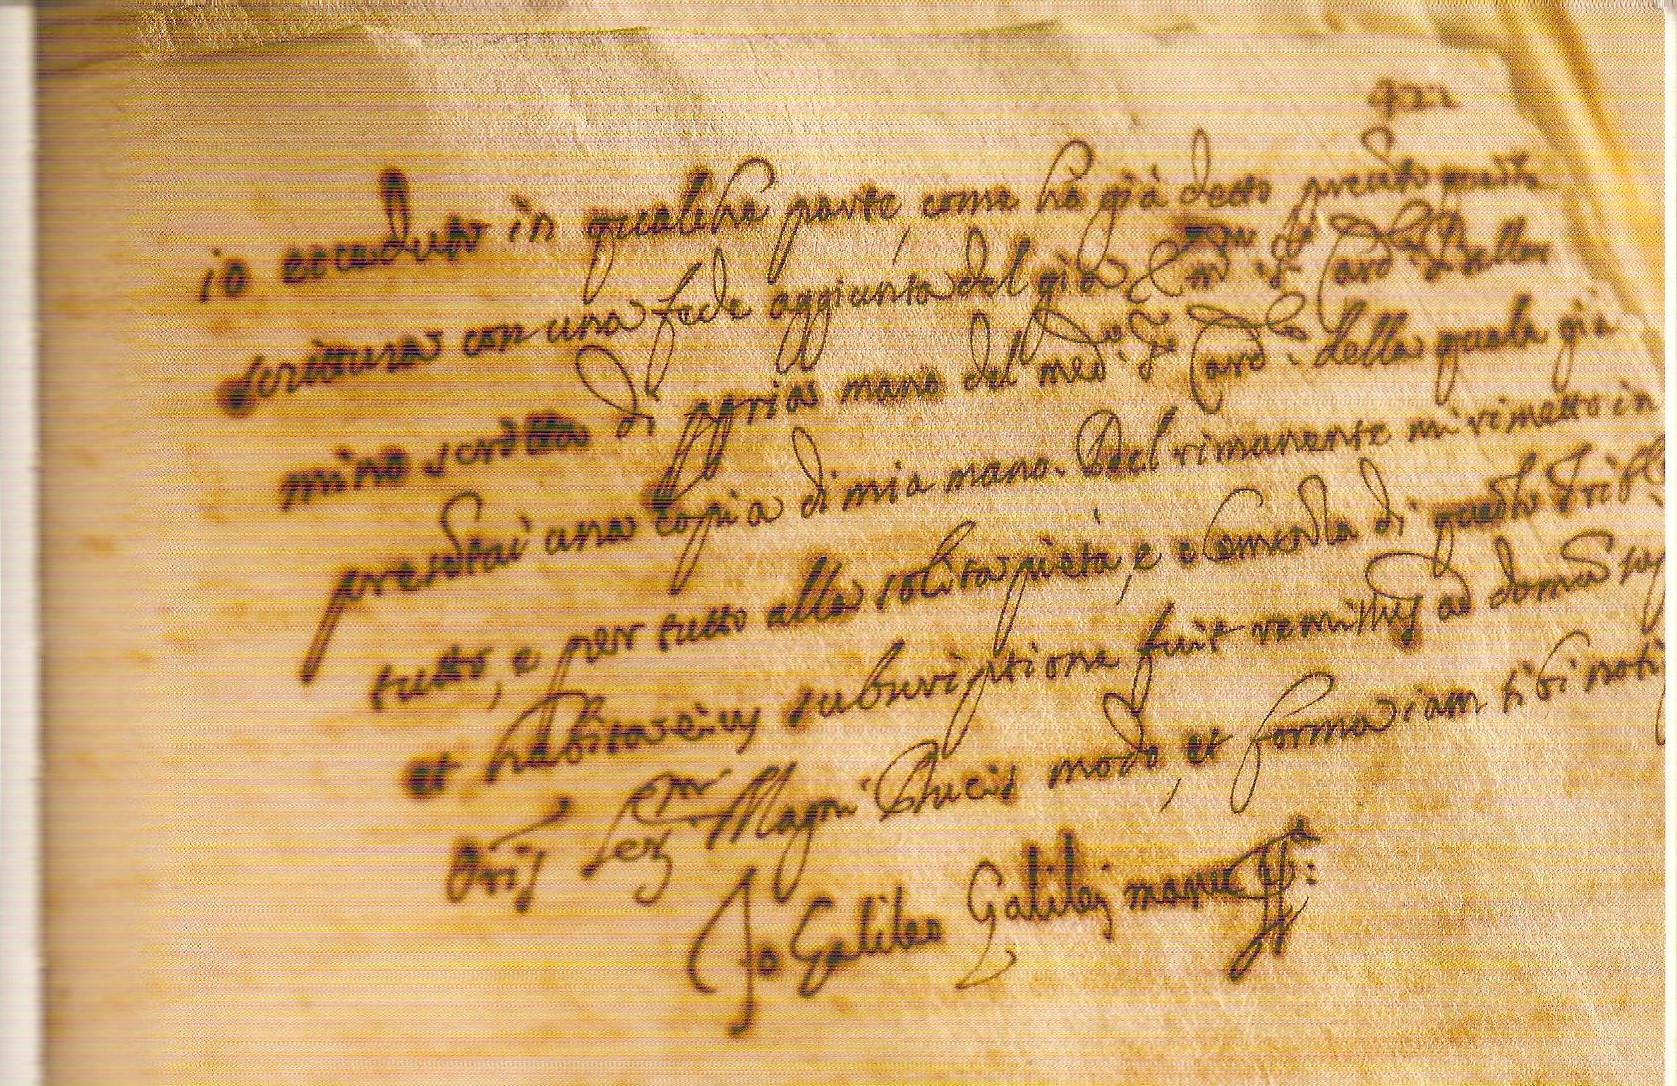 io ecceduto in qualche parte, come hò già detto
scrittura con una fede aggiunta del già Emo Sr Card.
mino scritta di ppria mano del medo Sr Card.le della quale già
presentai una copia di mia mano. Del rimanente mi rimetto in
tutto, e per tutto alla solita pietà, e clemenza di questo Trible
et habita eius subscriptione fuit remissus ad domum
Oris Sermi Magni Ducis modo, et forma iam sibi noti
Io Galileo Galilej manu ppa: